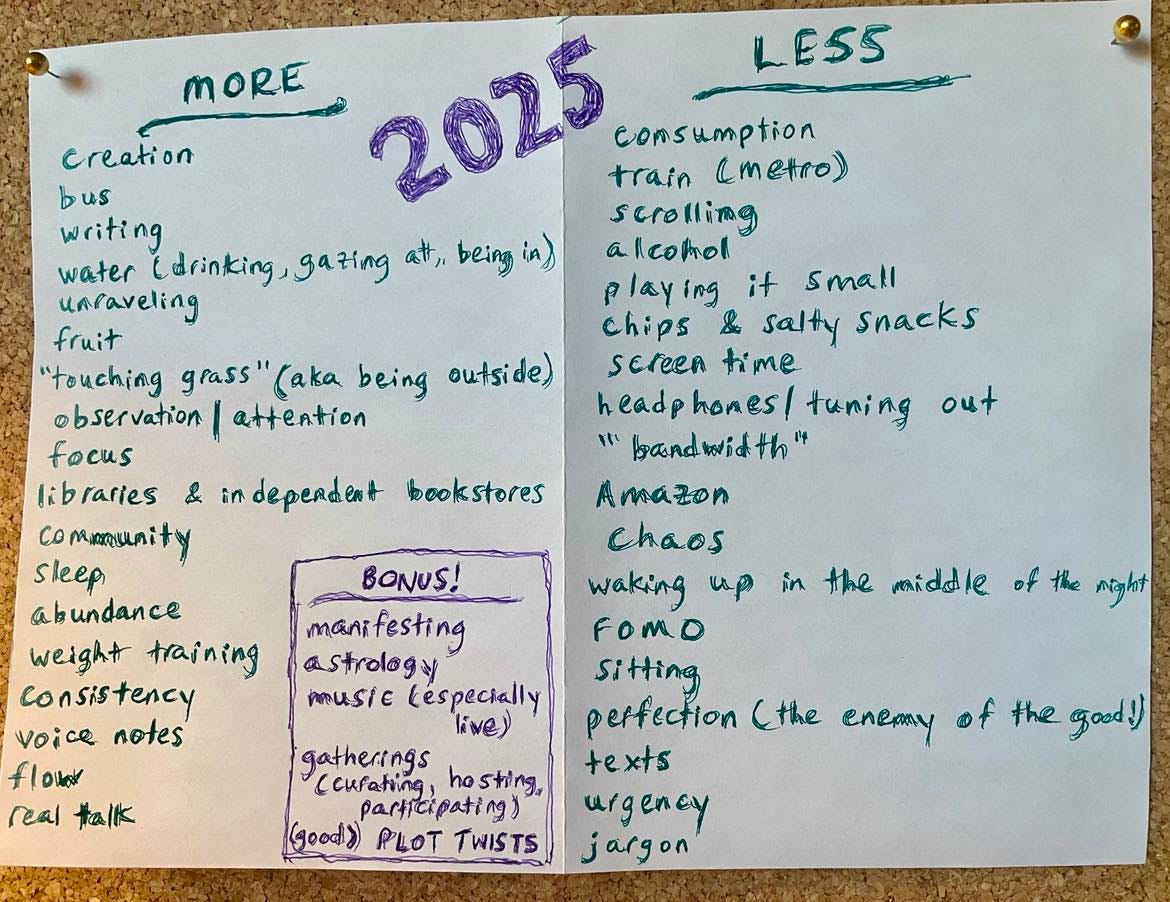 2025
MORE
creation
bus
writing
water (drinking, gazing at, being in)
unraveling
fruit
"touching grass" (aka being outside)
observation / attention
focus
libraries & independent bookstores
community
sleep
abundance
weight training
consistency
voice notes
flow
real talk
BONUS!
manifesting
astrology
music (especially
live)
gatherings
(curating, hosting,
participating)
(good!) PLOT TWISTS
LESS
consumption
train (metro)
scrolling
alcohol
playing it small
chips & salty snacks
screen time
headphones / tuning out
"bandwidth"
Amazon
Chaos
waking up in the middle of the night
FOMO
sitting
perfection (the enemy of the good!)
texts
urgency
jargon